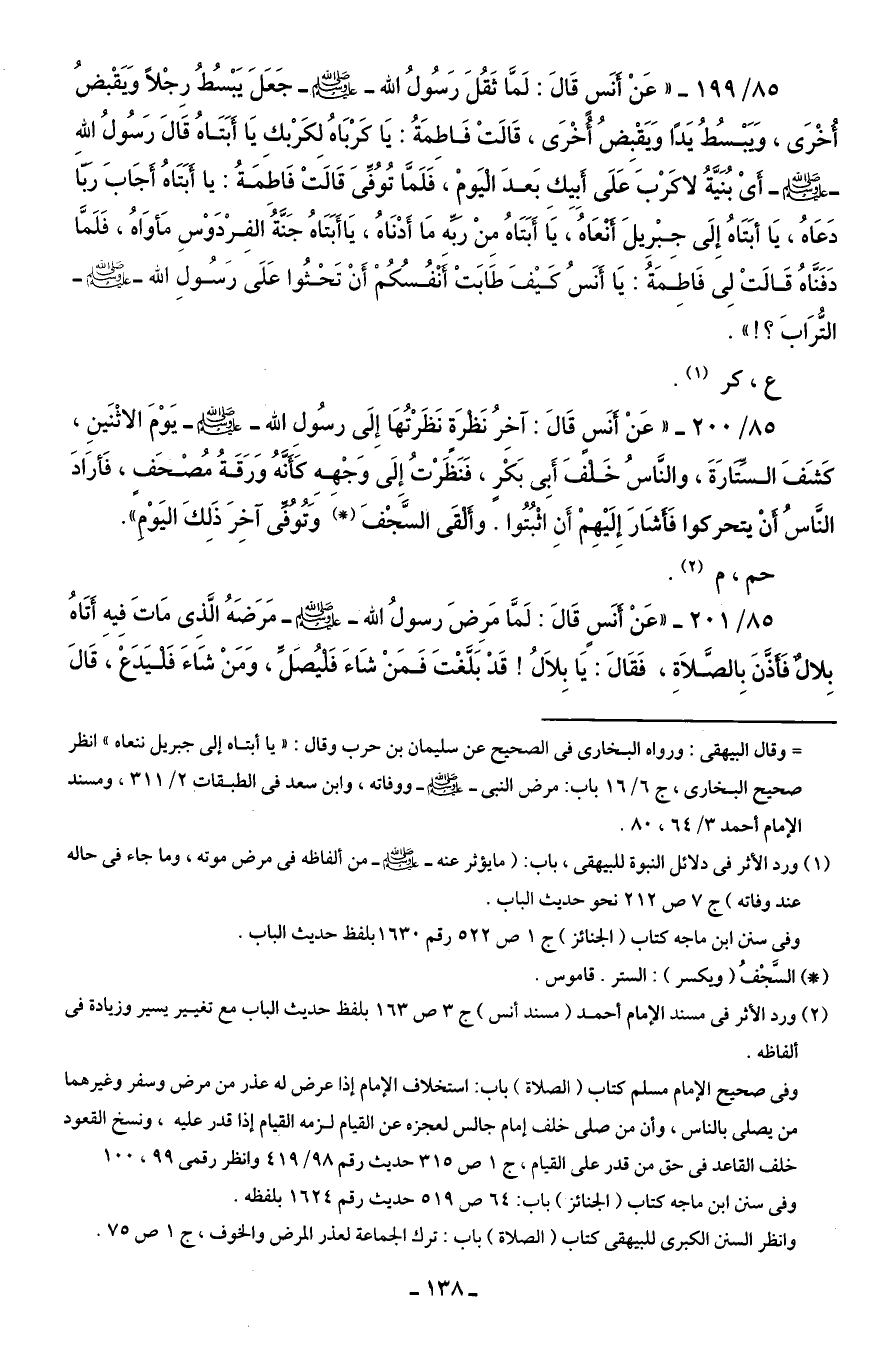 ٨٥/ ١٩٩ ـ « عَنْ أَنَسٍ قَالَ : لَمَّا ثَقُلَ رَسُولُ الله ـ ﷺ ـ جَعَلَ يَبْسُطُ رِجْلاً وَيَقْبِضُ
أُخْرَى ، وَيَبْسُطُ يَدًا وَيَقْبِضُ أُخْرَى ، قَالَتْ فَاطِمَةُ : يَا كَرْبَاهُ لِكَرْبِكَ يَا أَبَتَاهُ قَالَ رَسُولُ الله
ـ ﷺ ـ أَىْ بُنَيَّةُ لاكَرْبَ عَلَى أَبِيكِ بَعدَ الْيَومِ ، فَلَمَّا تُوُفِّىَ قَالَتْ فَاطِمَةُ : يا أَبَتَاهُ أَجَابَ رَبّا
دَعَاهُ ، يَا أَبَتَاهُ إِلَى جِبْرِيلَ أَنْعَاهُ ، يَا أَبَتَاهُ مِنْ رَبِّه مَا أَدْنَاهُ ، يَاأَبَتَاهُ جَنَّةُ الفِرْدَوْسِ مَأوَاهُ ، فَلَمَّا
دَفَنَّاهُ قَالَتْ لِى فَاطِمَةُ : يَا أَنَسُ كَيْفَ طَابَتْ أَنْفُسُكُمْ أَنْ تَحْثُوا عَلَى رَسُولِ الله ـ ﷺ ـ
التُّرَابَ ؟!» .
ع ، كر (١) .
٨٥/ ٢٠٠ ـ « عَنْ أَنَسٍ قَالَ : آخرُ نَظْرَةٍ نَظَرْتُهَا إِلَى رسولِ الله ـ ﷺ ـ يَوْمَ الاثْنَينِ ،
كَشَفَ السِّتَارَةَ ، والنَّاسُ خَلْفَ أَبِى بَكْرٍ ، فَنَظَرْتُ إِلَى وَجْهِهِ كَأَنَّهُ وَرَقَةُ مُصْحَفٍ ، فَأَرَادَ
النَّاسُ أَنْ يتحركوا فَأَشَارَ إِلَيْهِمْ أَنِ اثْبُتُوا . وأَلْقَى السَّجْفَ (*) وَتُوُفِّى آخِرَ ذَلِكَ اليَوْمِ».
حم ، م (٢) .
٨٥/ ٢٠١ ـ «عَنْ أَنَسٍ قَالَ : لَمَّا مَرِضَ رسولُ الله ـ ﷺ ـ مَرَضَهُ الَّذِى مَاتَ فِيهِ أَتَاهُ
بِلالٌ فَأَذَّنَ بِالصَّلاَةِ ، فَقَالَ : يَا بِلاَلُ ! قَدْ بَلَّغْتَ فَمَنْ شَاءَ فَلْيُصَلِّ ، وَمَنْ شَاءَ فَلْيَدَعْ ، قَالَ
= وقال البيهقى : ورواه البخارى فى الصحيح عن سليمان بن حرب وقال : « يا أبتاه إلى جبريل ننعاه » انظر
صحيح البخارى ، ج ٦/ ١٦ باب: مرض النبى ـ ﷺ ـ ووفاته ، وابن سعد فى الطبقات ٢/ ٣١١ ، ومسند
الإمام أحمد ٣/ ٦٤ ، ٨٠ .
(١) ورد الأثر فى دلائل النبوة للبيهقى ، باب: ( مايؤثر عنه ـ ﷺ ـ من ألفاظه فى مرض موته ، وما جاء فى حاله
عند وفاته ) ج ٧ ص ٢١٢ نحو حديث الباب .
وفى سنن ابن ماجه كتاب ( الجنائز ) ج ١ ص ٥٢٢ رقم ١٦٣٠ بلفظ حديث الباب .
(*) السَّجْفُ ( ويكسر ) : الستر . قاموس .
(٢) ورد الأثر فى مسند الإمام أحمد ( مسند أنس ) ج ٣ ص ١٦٣ بلفظ حديث الباب مع تغيير يسير وزيادة فى
ألفاظه .
وفى صحيح الإمام مسلم كتاب ( الصلاة ) باب: استخلاف الإمام إذا عرض له عذر من مرض وسفر وغيرهما
من يصلى بالناس ، وأن من صلى خلف إمام جالس لعجزه عن القيام لزمه القيام إذا قدر عليه ، ونسخ القعود
خلف القاعد فى حق من قدر على القيام ، ج ١ ص ٣١٥ حديث رقم ٩٨/ ٤١٩ وانظر رقمى ٩٩ ، ١٠٠
وفى سنن ابن ماجه كتاب ( الجنائز ) باب: ٦٤ ص ٥١٩ حديث رقم ١٦٢٤ بلفظه .
وانظر السنن الكبرى للبيهقى كتاب ( الصلاة ) باب : ترك الجماعة لعذر المرض والخوف ، ج ١ ص ٧٥ .
ـ ١٣٨ ـ